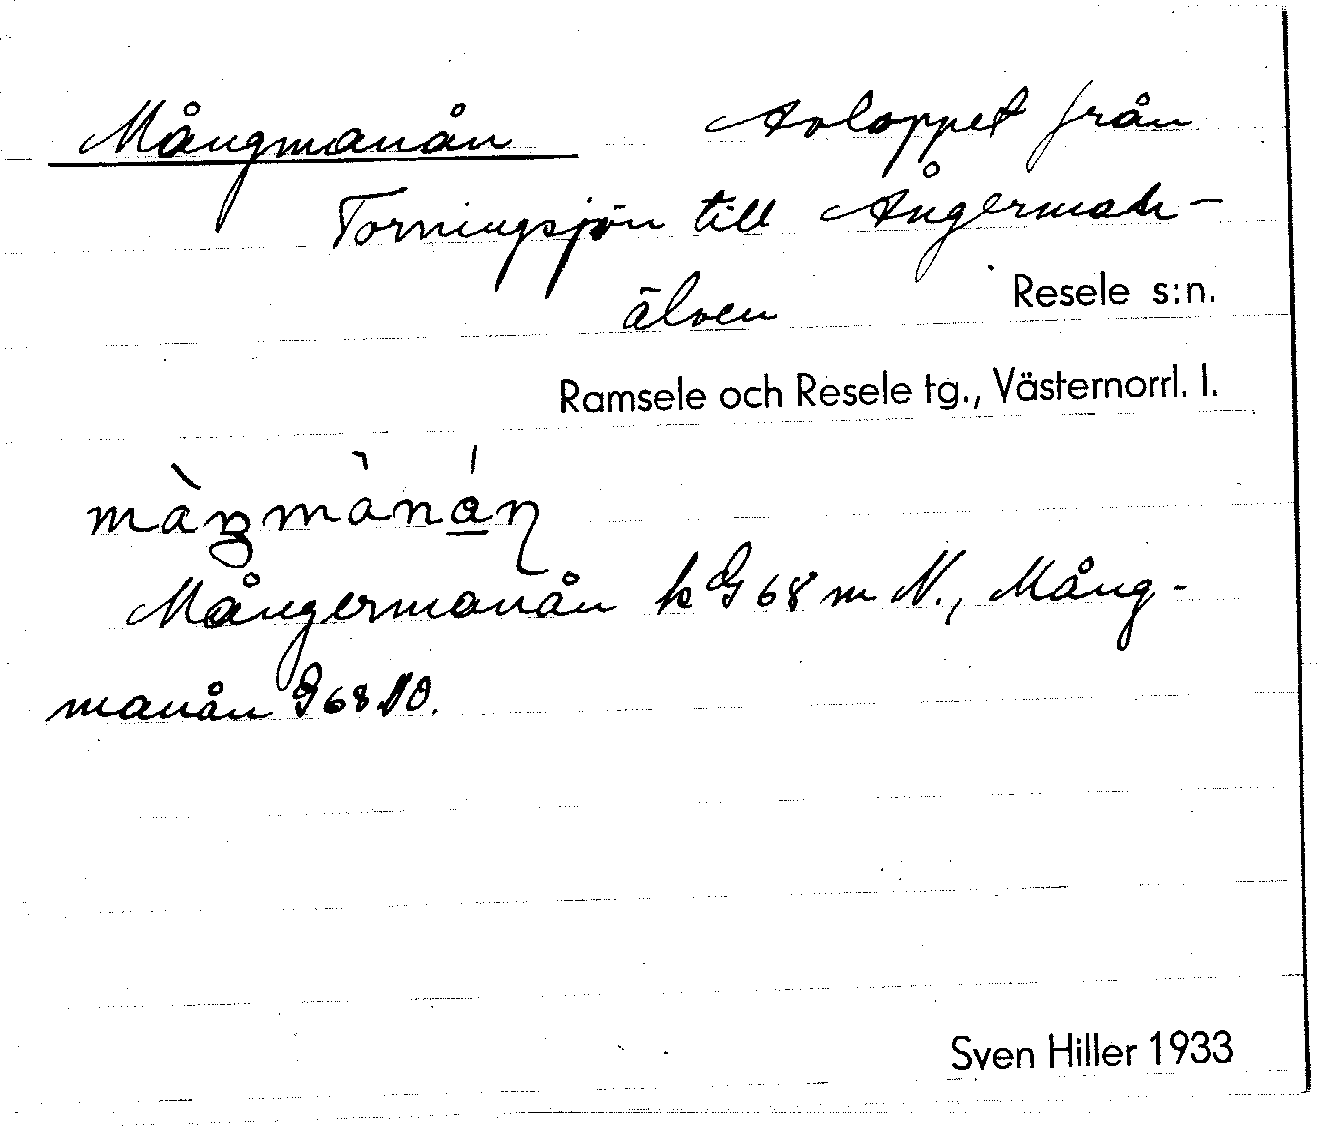 Mångmanån Avloppet från
Torringsjön till Ångerman-
älven Resele s:n.
Ramsele och Resele tg., Västernorrl. l.
Mångermanån k G 68 m N., Mång-
manån G 68 NO.
Sven Hiller 1933